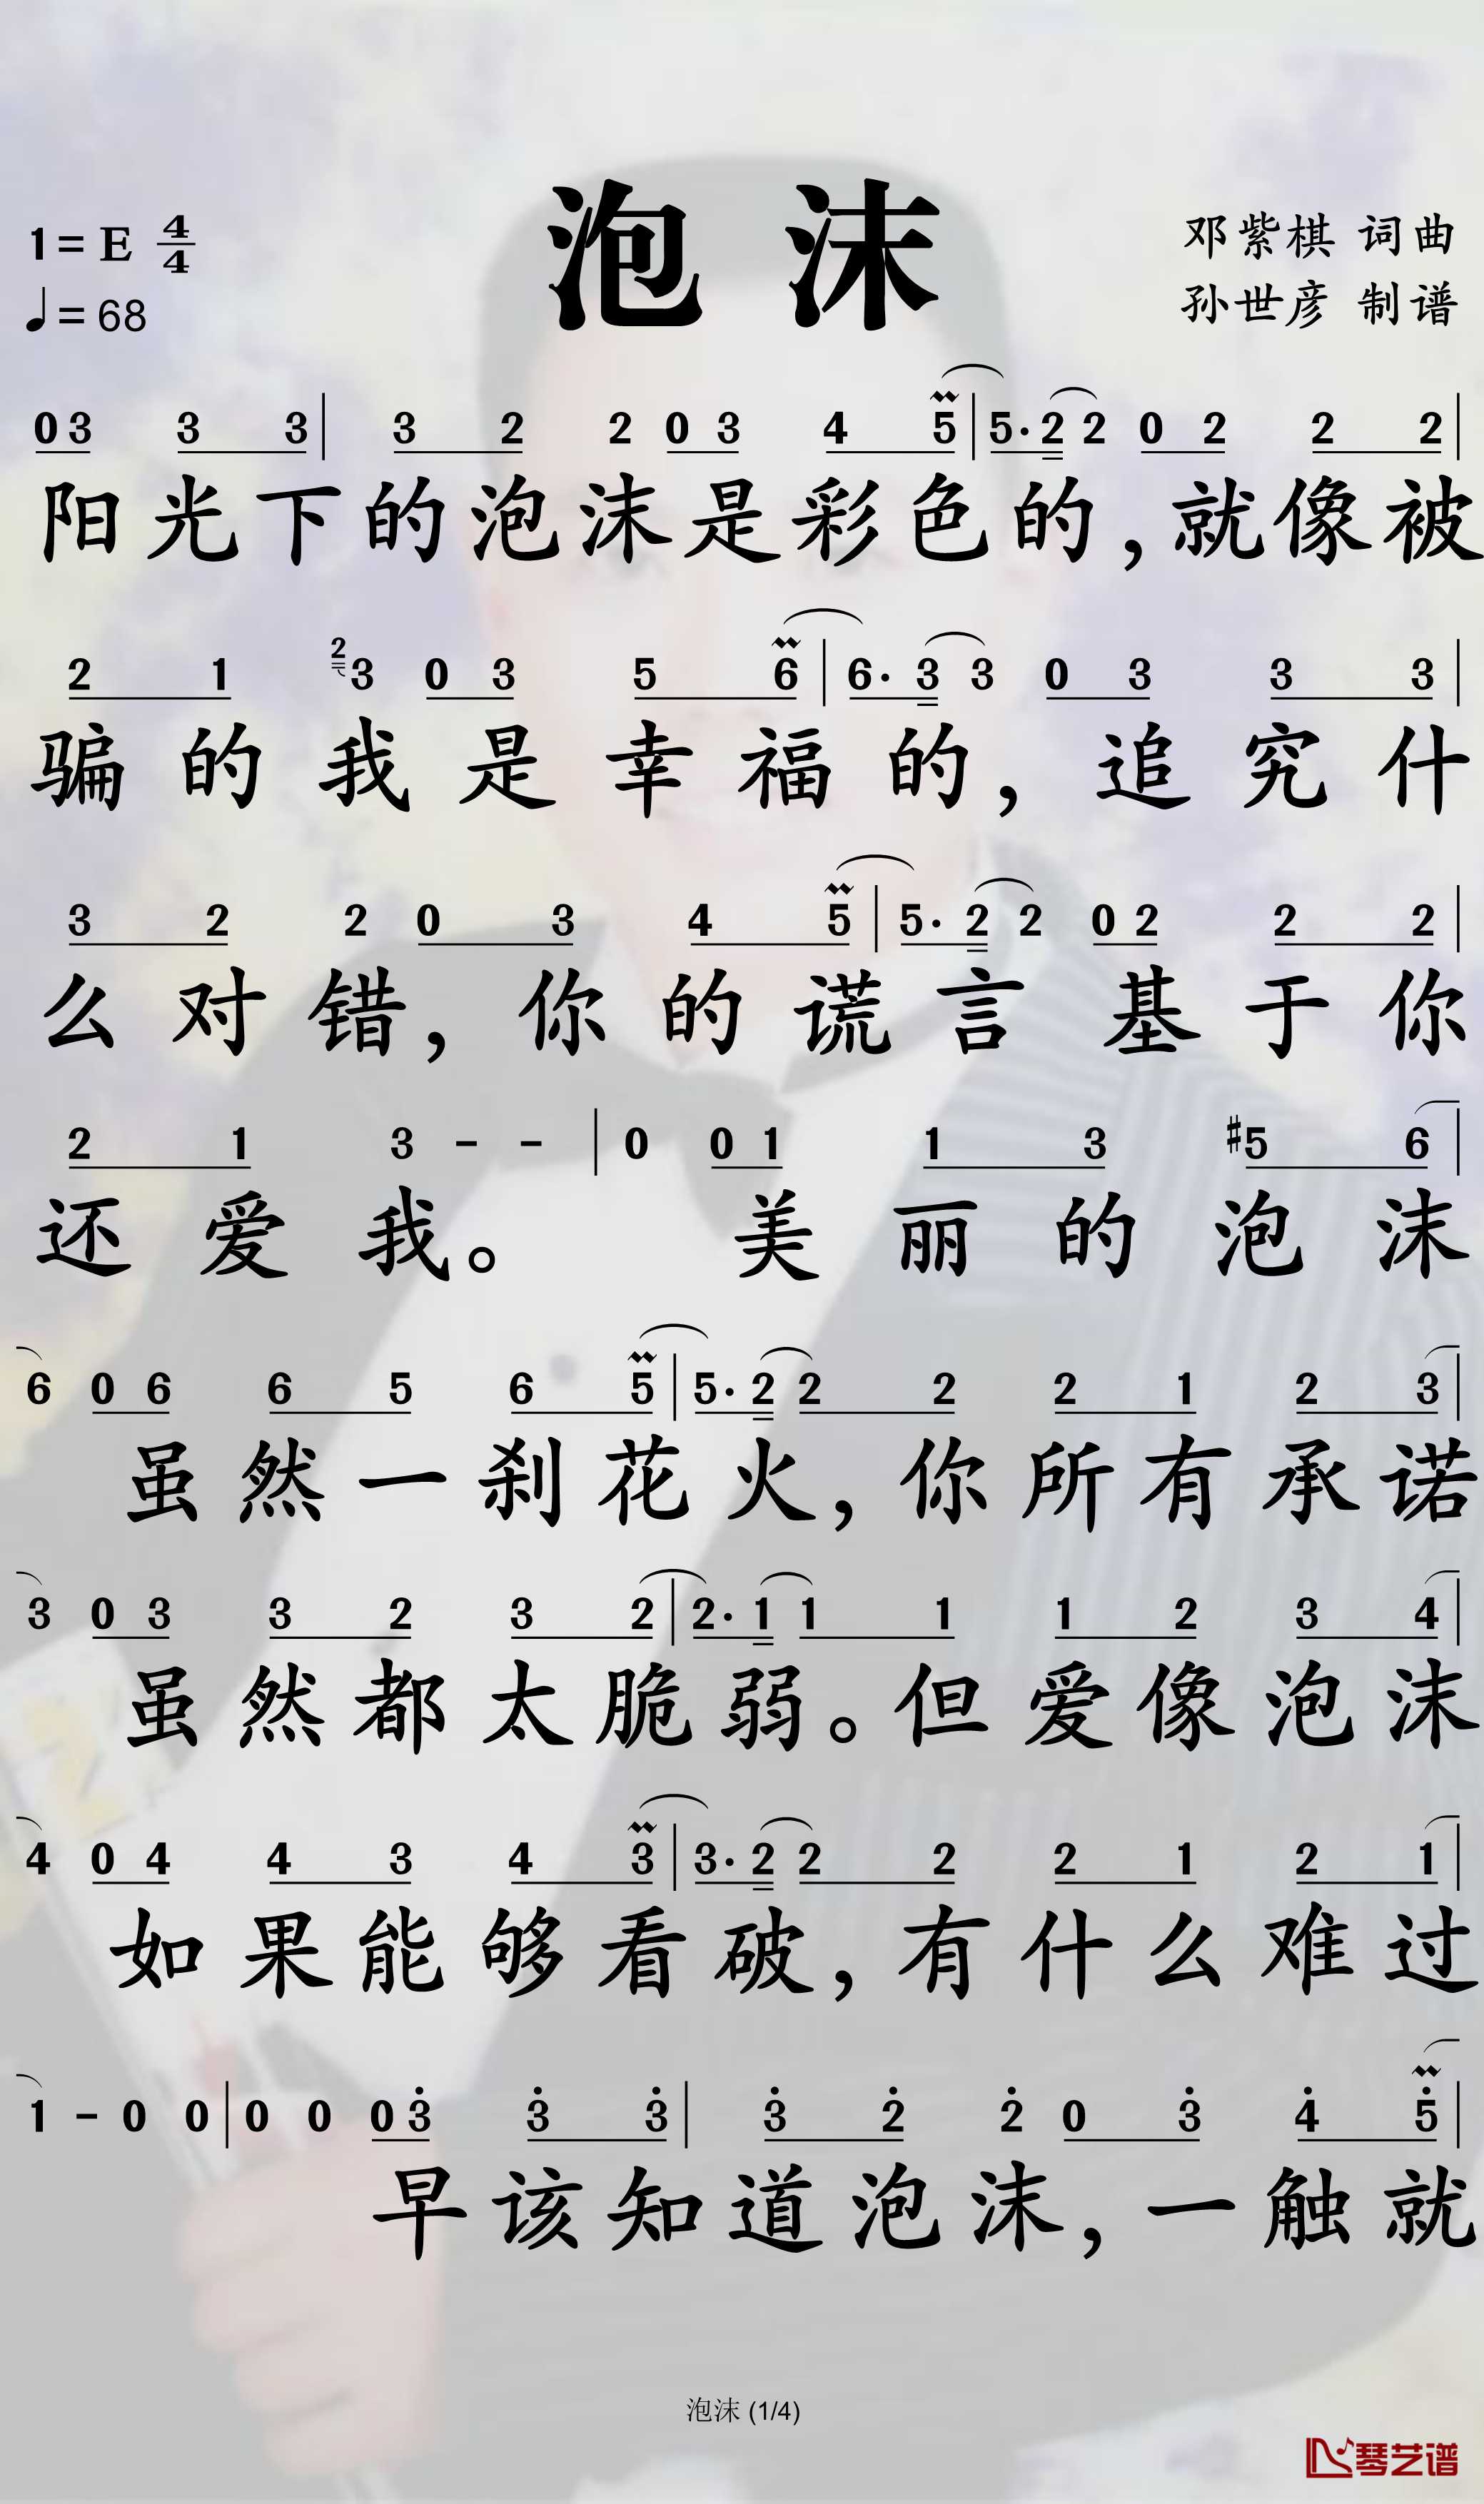 泡 沫
1=E 4/4
♩=68
邓紫棋 词曲
孙世彦 制谱
0 3 3 3 | 3 2 2 0 3 4 5 | 5· 2 2 0 2 2 2 |
阳光下的泡沫是彩色的,就像被
2 1 2 3 0 3 5 6 | 6· 3 3 0 3 3 3 |
骗的我是幸福的,追究什
3 2 2 0 3 4 5 | 5· 2 2 0 2 2 2 |
么对错,你的谎言基于你
2 1 3 - - | 0 0 1 1 3 #5 6 |
还爱我。 美丽的泡沫
6 0 6 6 5 6 5 | 5· 2 2 2 2 1 2 3 |
虽然一刹花火,你所有承诺
3 0 3 3 2 3 2 | 2· 1 1 1 1 2 3 4 |
虽然都太脆弱。但爱像泡沫
4 0 4 4 3 4 3 | 3· 2 2 2 2 1 2 1 |
如果能够看破,有什么难过
1 - 0 0 | 0 0 0 3̇ 3̇ 3̇ | 3̇ 2̇ 2̇ 0 3̇ 4̇ 5̇ |
早该知道泡沫,一触就
泡沫 (1/4)
琴艺谱